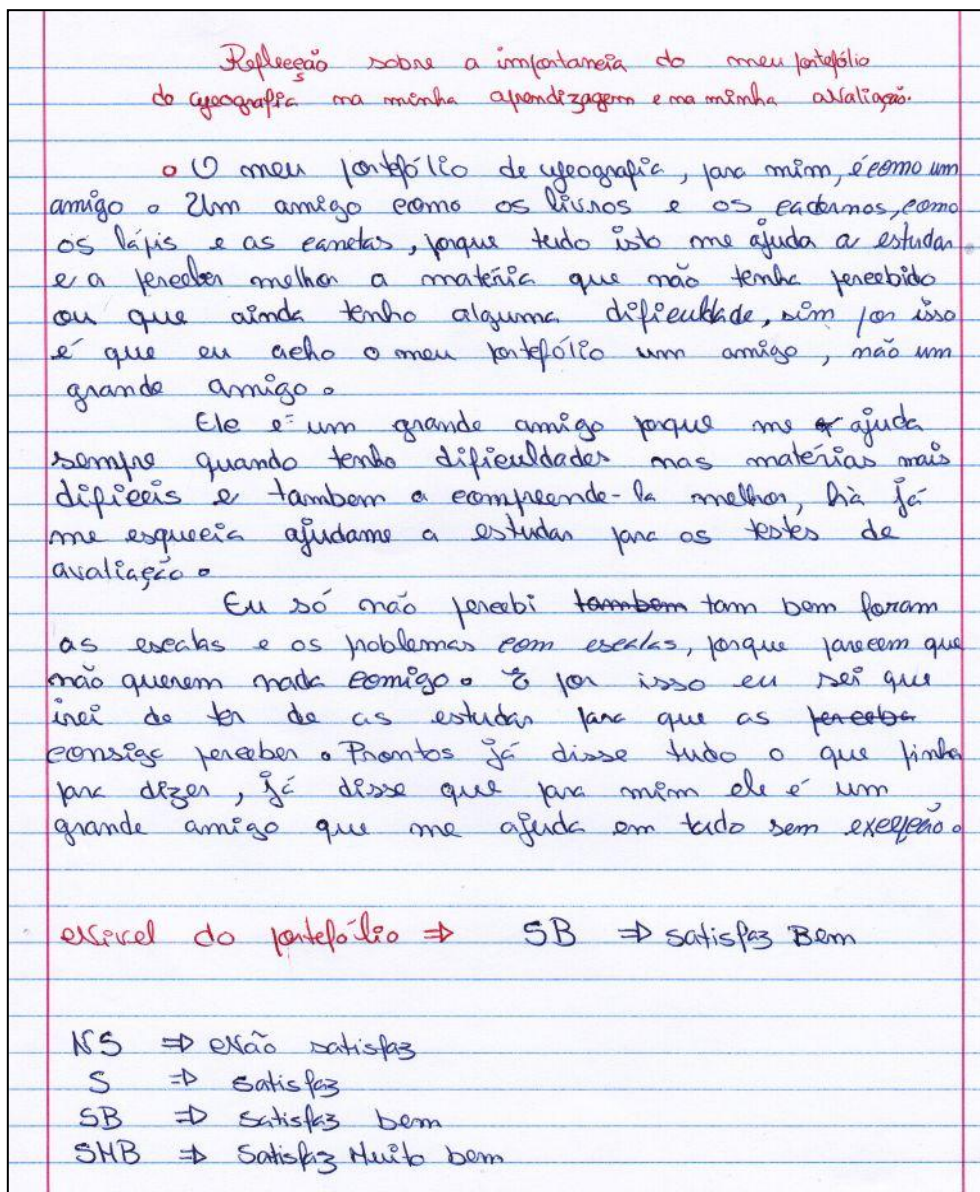 Reflecção sobre a importancia do meu portefólio
do geografia na minha aprendizagem e na minha avaliação.
O meu portefólio de geografia, para mim, é como um
amigo. Um amigo como os livros e os cadernos, como
os lápis e as canetas, porque tudo isto me ajuda a estudar
e a perceber melhor a matéria que não tenha percebido
ou que ainda tenho alguma dificuldade, sim por isso
é que eu acho o meu portefólio um amigo, não um
grande amigo.
Ele é um grande amigo porque me ajuda
sempre quando tenho dificuldades nas matérias mais
difíceis e tambem a compreende-la melhor, há já
me esquecia ajudame a estudar para os testes de
avaliação.
Eu só não percebi tambem tam bem foram
as escalas e os problemas com escalas, porque parecem que
não querem nada comigo. E por isso eu sei que
irei de ter de as estudar para que as perceba
consiga perceber. Prontos já disse tudo o que tinha
para dizer, já disse que para mim ele é um
grande amigo que me ajuda em tudo sem exepção.
Nivel do portefólio ⇒ SB ⇒ satisfaz Bem
NS ⇒ Não satisfaz
S ⇒ satisfaz
SB ⇒ satisfaz bem
SMB ⇒ Satisfaz Muito bem